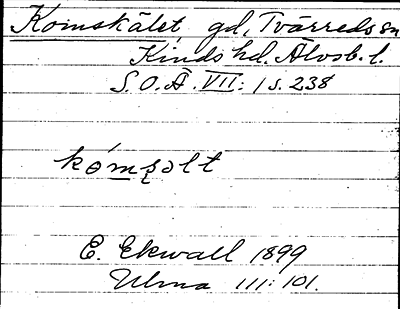 Komskälet, gd, Tvärreds sn
Kinds hd. Älvsb. l.
S.O.Ä. VII: 1 s. 238
kómsəlt
E. Ekwall 1899
Ulma 111:101.